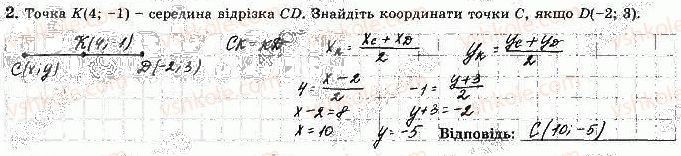 2. Точка K(4; −1) – середина відрізка CD. Знайдіть координати точки C, якщо D(−2; 3).
K(4; −1) CK = KD x_K = (x_C + x_D)/2 y_K = (y_C + y_D)/2
C(x; y) D(−2; 3)
4 = (x − 2)/2 −1 = (y + 3)/2
x − 2 = 8 y + 3 = −2
x = 10 y = −5 Відповідь: C(10; −5)